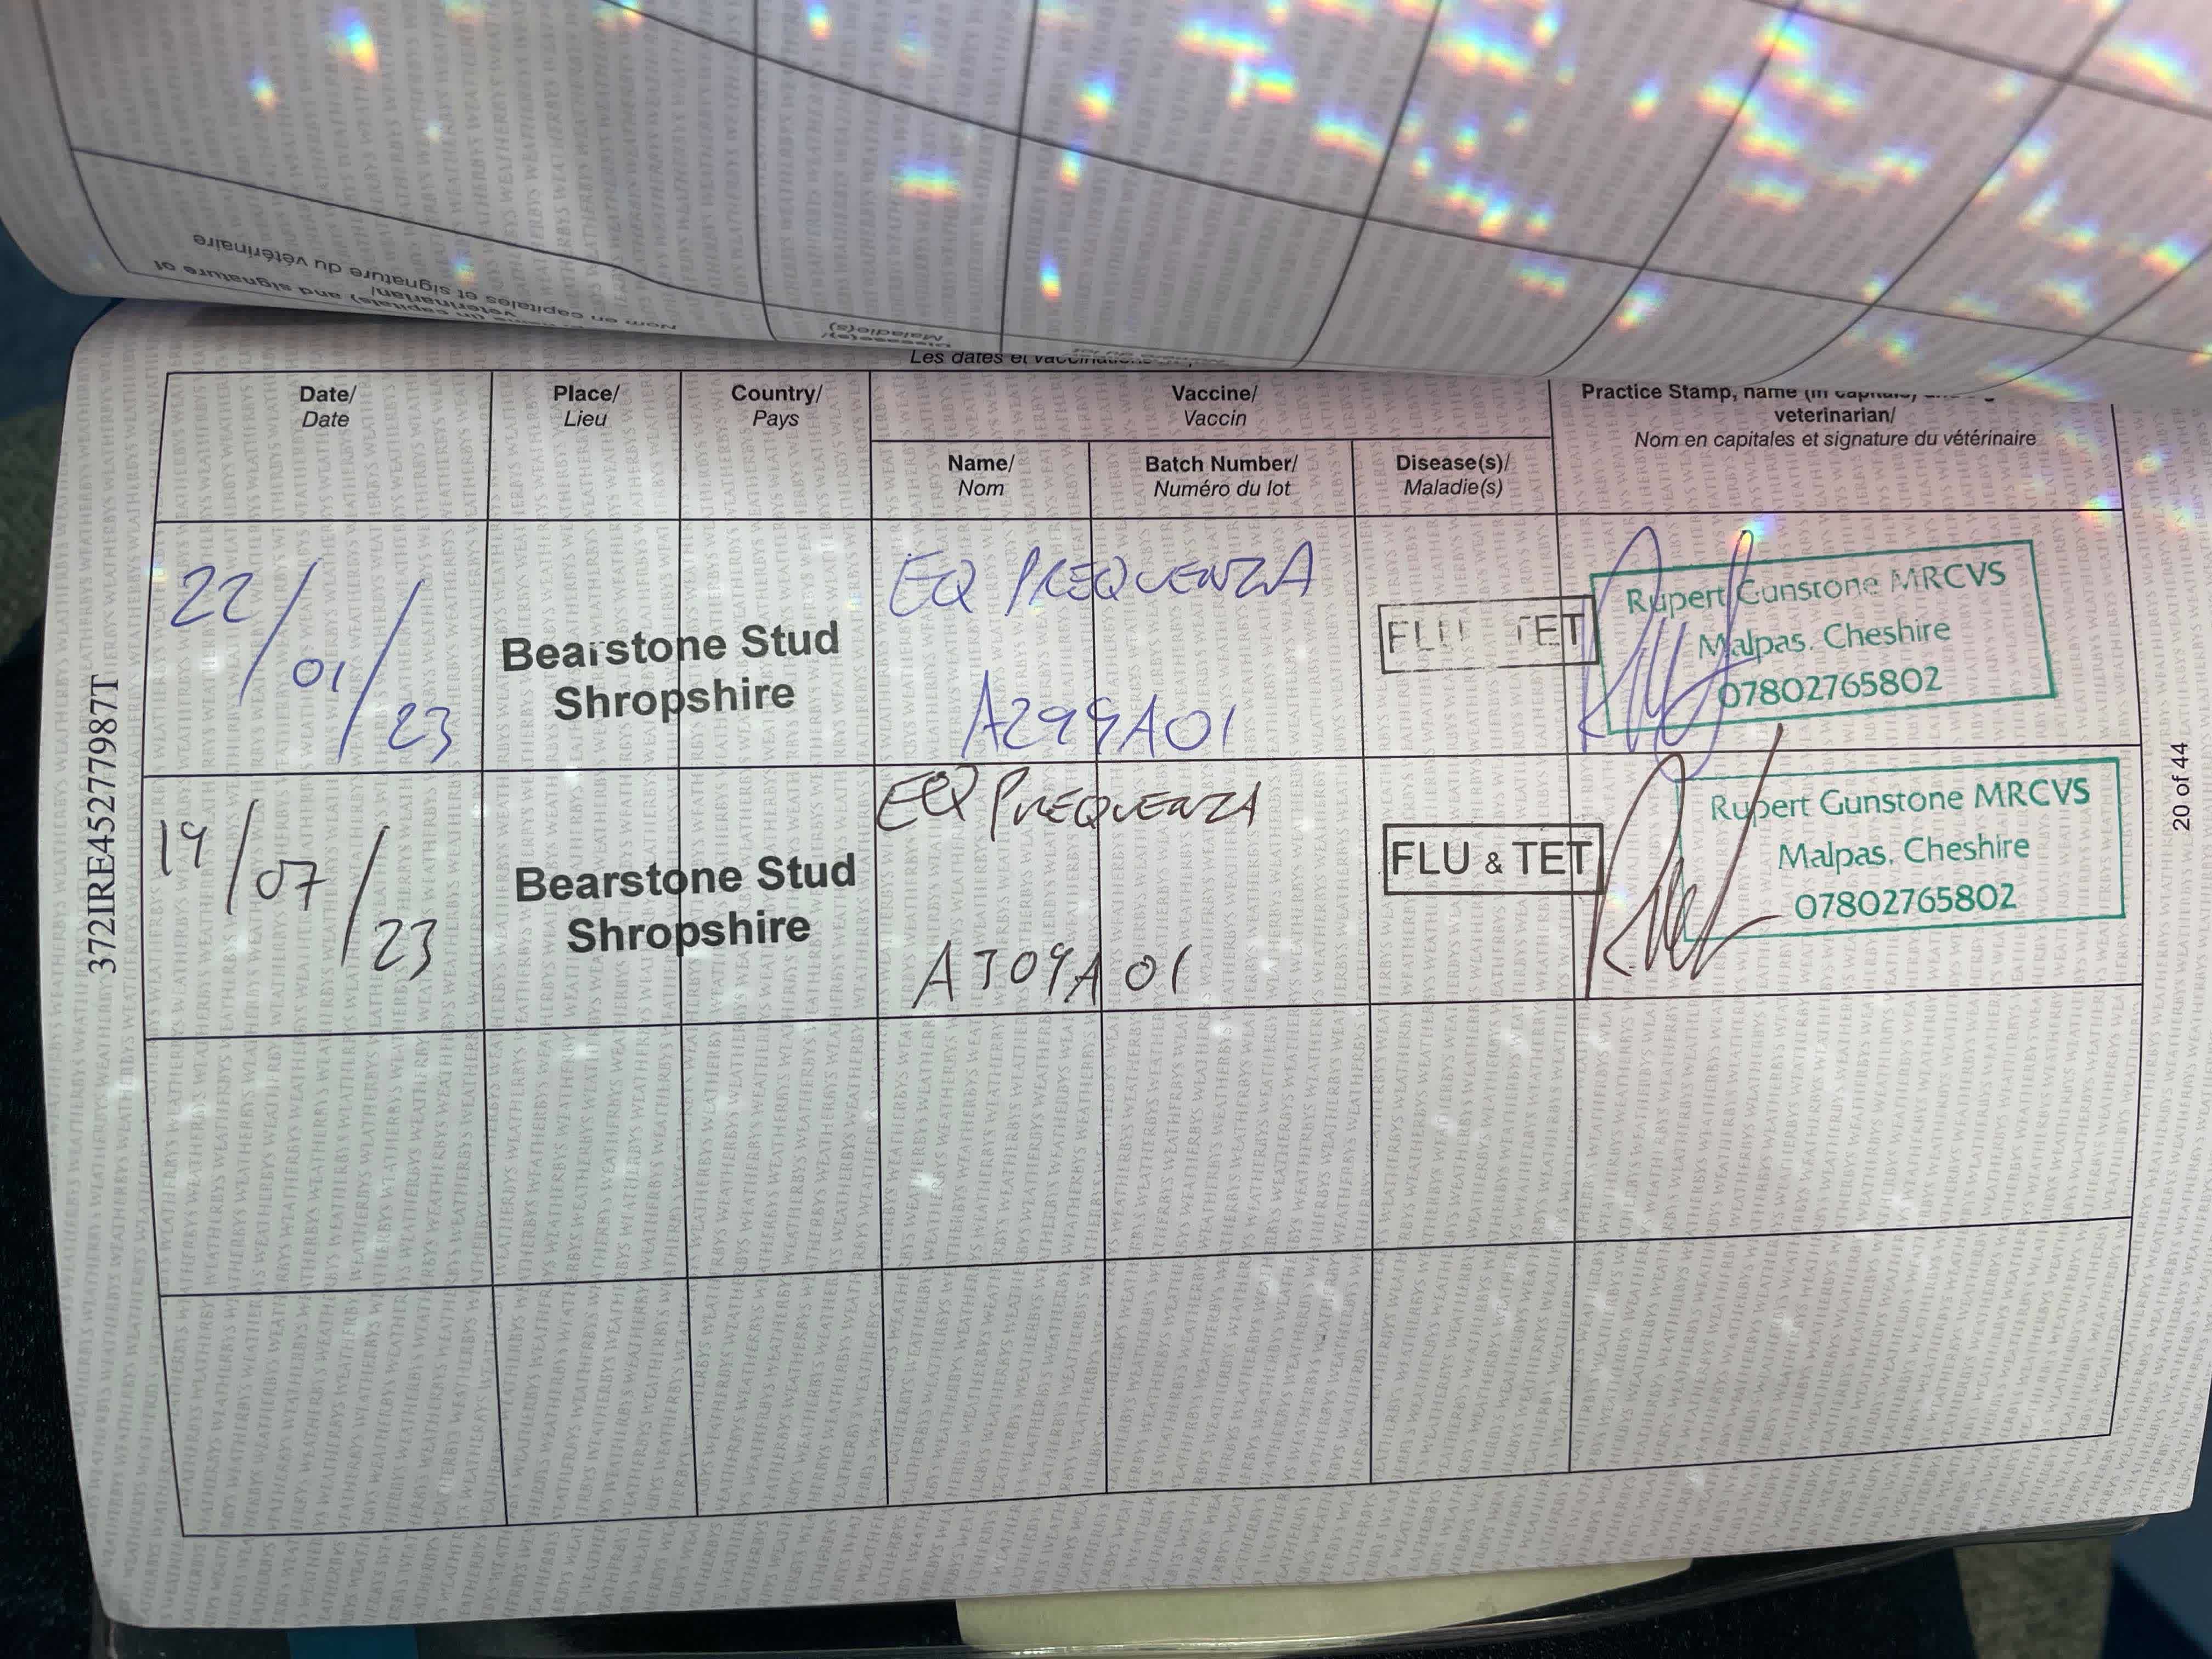 Nom en capitales et signature du vétérinaire
Disease(s)/
Maladie(s)
Les dates et vaccinations
Date/
Date
Place/
Lieu
Country/
Pays
Vaccine/
Vaccin
Practice Stamp, name (in capitals)
veterinarian/
Nom en capitales et signature du vétérinaire
Name/
Nom
Batch Number/
Numéro du lot
Disease(s)/
Maladie(s)
22/01/23
Bearstone Stud
Shropshire
EQ PREQUENZA
A299A01
FLU TET
Rupert Gunstone MRCVS
Malpas. Cheshire
07802765802
19/07/23
Bearstone Stud
Shropshire
EQ PREQUENZA
A309A01
FLU & TET
Rupert Gunstone MRCVS
Malpas. Cheshire
07802765802
372IRE452779987T
20 of 44